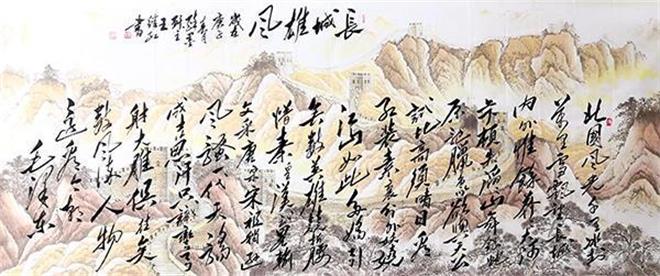 長城雄风
北國风光千里冰封
萬里雪飄望長城
內外惟餘莽莽大河
頓失滔滔山舞銀蛇
原馳臘象欲與天公
試比高須晴日看
紅裝素裹分外妖嬈
江山如此多嬌引
無數英雄競折腰
惜秦皇漢武略輸
文采唐宗宋祖稍遜
风騷一代天驕
成吉思汗只識彎弓
射大雕俱往矣
數风流人物
還看今朝
毛澤東